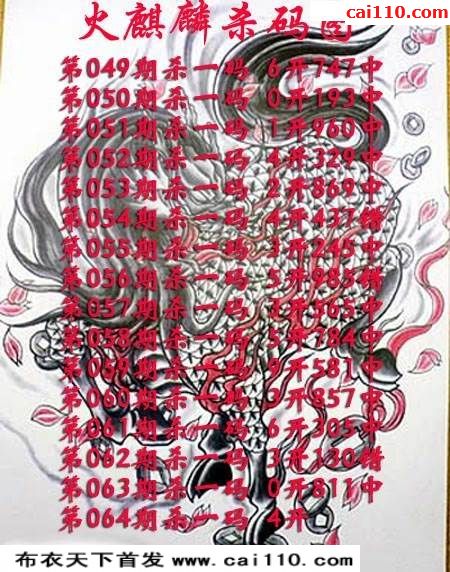 cai110.com
火麒麟杀码
第049期杀一码 6开747中
第050期杀一码 0开193中
第051期杀一码 1开960中
第052期杀一码 4开329中
第053期杀一码 2开869中
第054期杀一码 4开437错
第055期杀一码 3开245中
第056期杀一码 5开985错
第057期杀一码 开565中
第058期杀一码 5开784中
第059期杀一码 9开581中
第060期杀一码 开857中
第061期杀一码 6开305中
第062期杀一码 3开130错
第063期杀一码 0开811中
第064期杀一码 4开
布衣天下首发 www.cai110.com